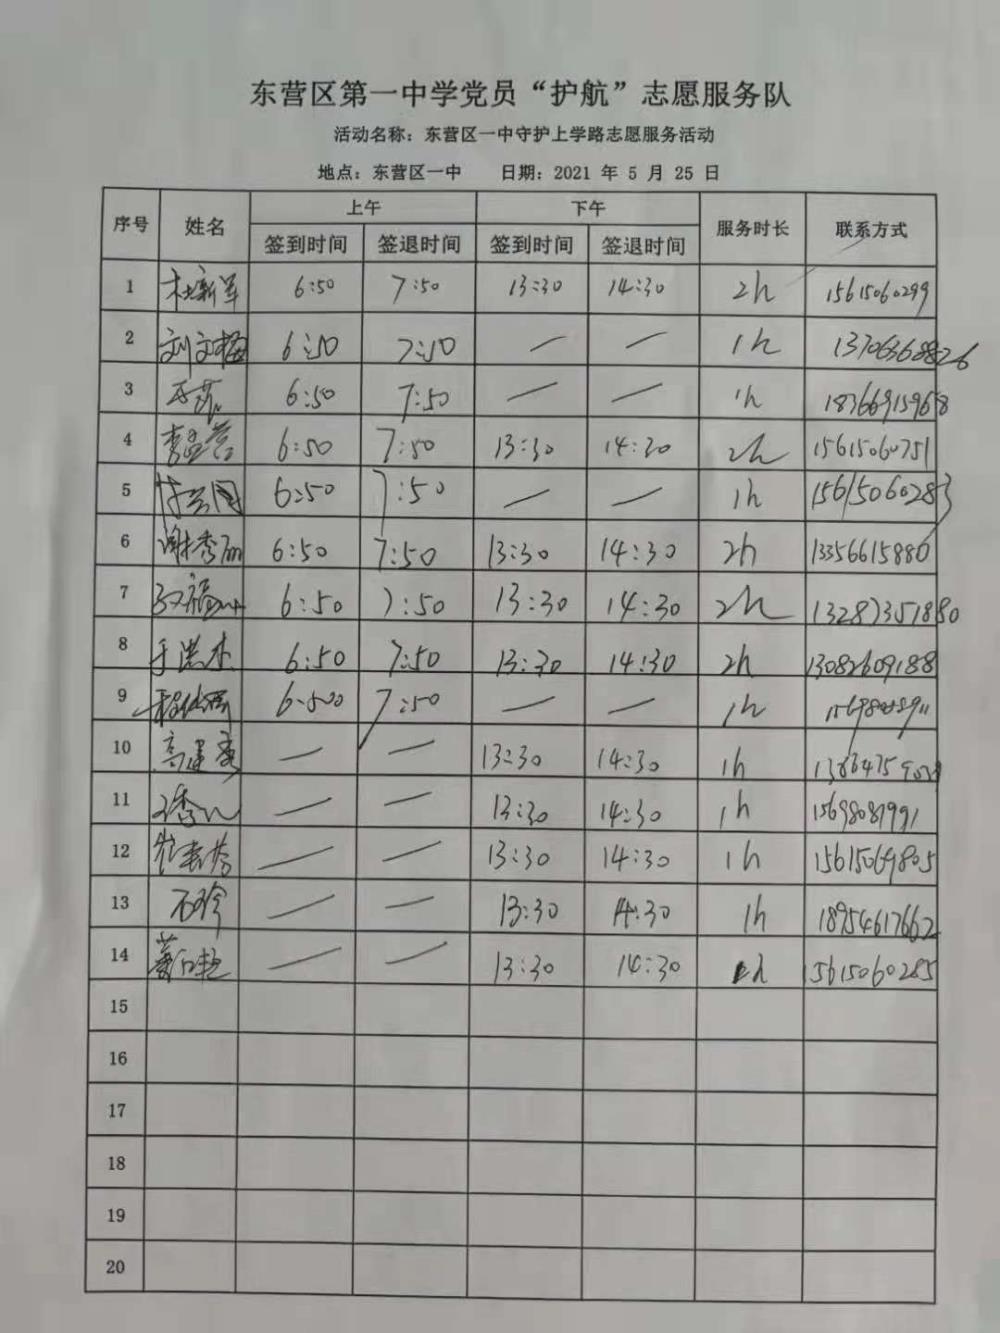 东营区第一中学党员“护航”志愿服务队
活动名称：东营区一中守护上学路志愿服务活动
地点：东营区一中 日期：2021 年 5 月 25 日
序号 姓名 上午 下午 服务时长 联系方式
签到时间 签退时间 签到时间 签退时间
1 杜新军 6:50 7:50 13:30 14:30 2h 15615060299
2 刘文梅 6:50 7:50 — — 1h 13706368826
3 6:50 7:50 — — 1h 18366915968
4 李孟营 6:50 7:50 13:30 14:30 2h 15615060751
5 6:50 7:50 — — 1h 15615060283
6 谢秀丽 6:50 7:50 13:30 14:30 2h 13356615880
7 6:50 7:50 13:30 14:30 2h 13287351880
8 于洪杰 6:50 7:50 13:30 14:30 2h 13082609188
9 6:500 7:50 — — 1h
10 — — 13:30 14:30 1h
11 — — 13:30 14:30 1h 15698081991
12 — — 13:30 14:30 1h 15615069805
13 石玲 — — 13:30 14:30 1h 18954617662
14 — — 13:30 14:30 15615060285
15
16
17
18
19
20